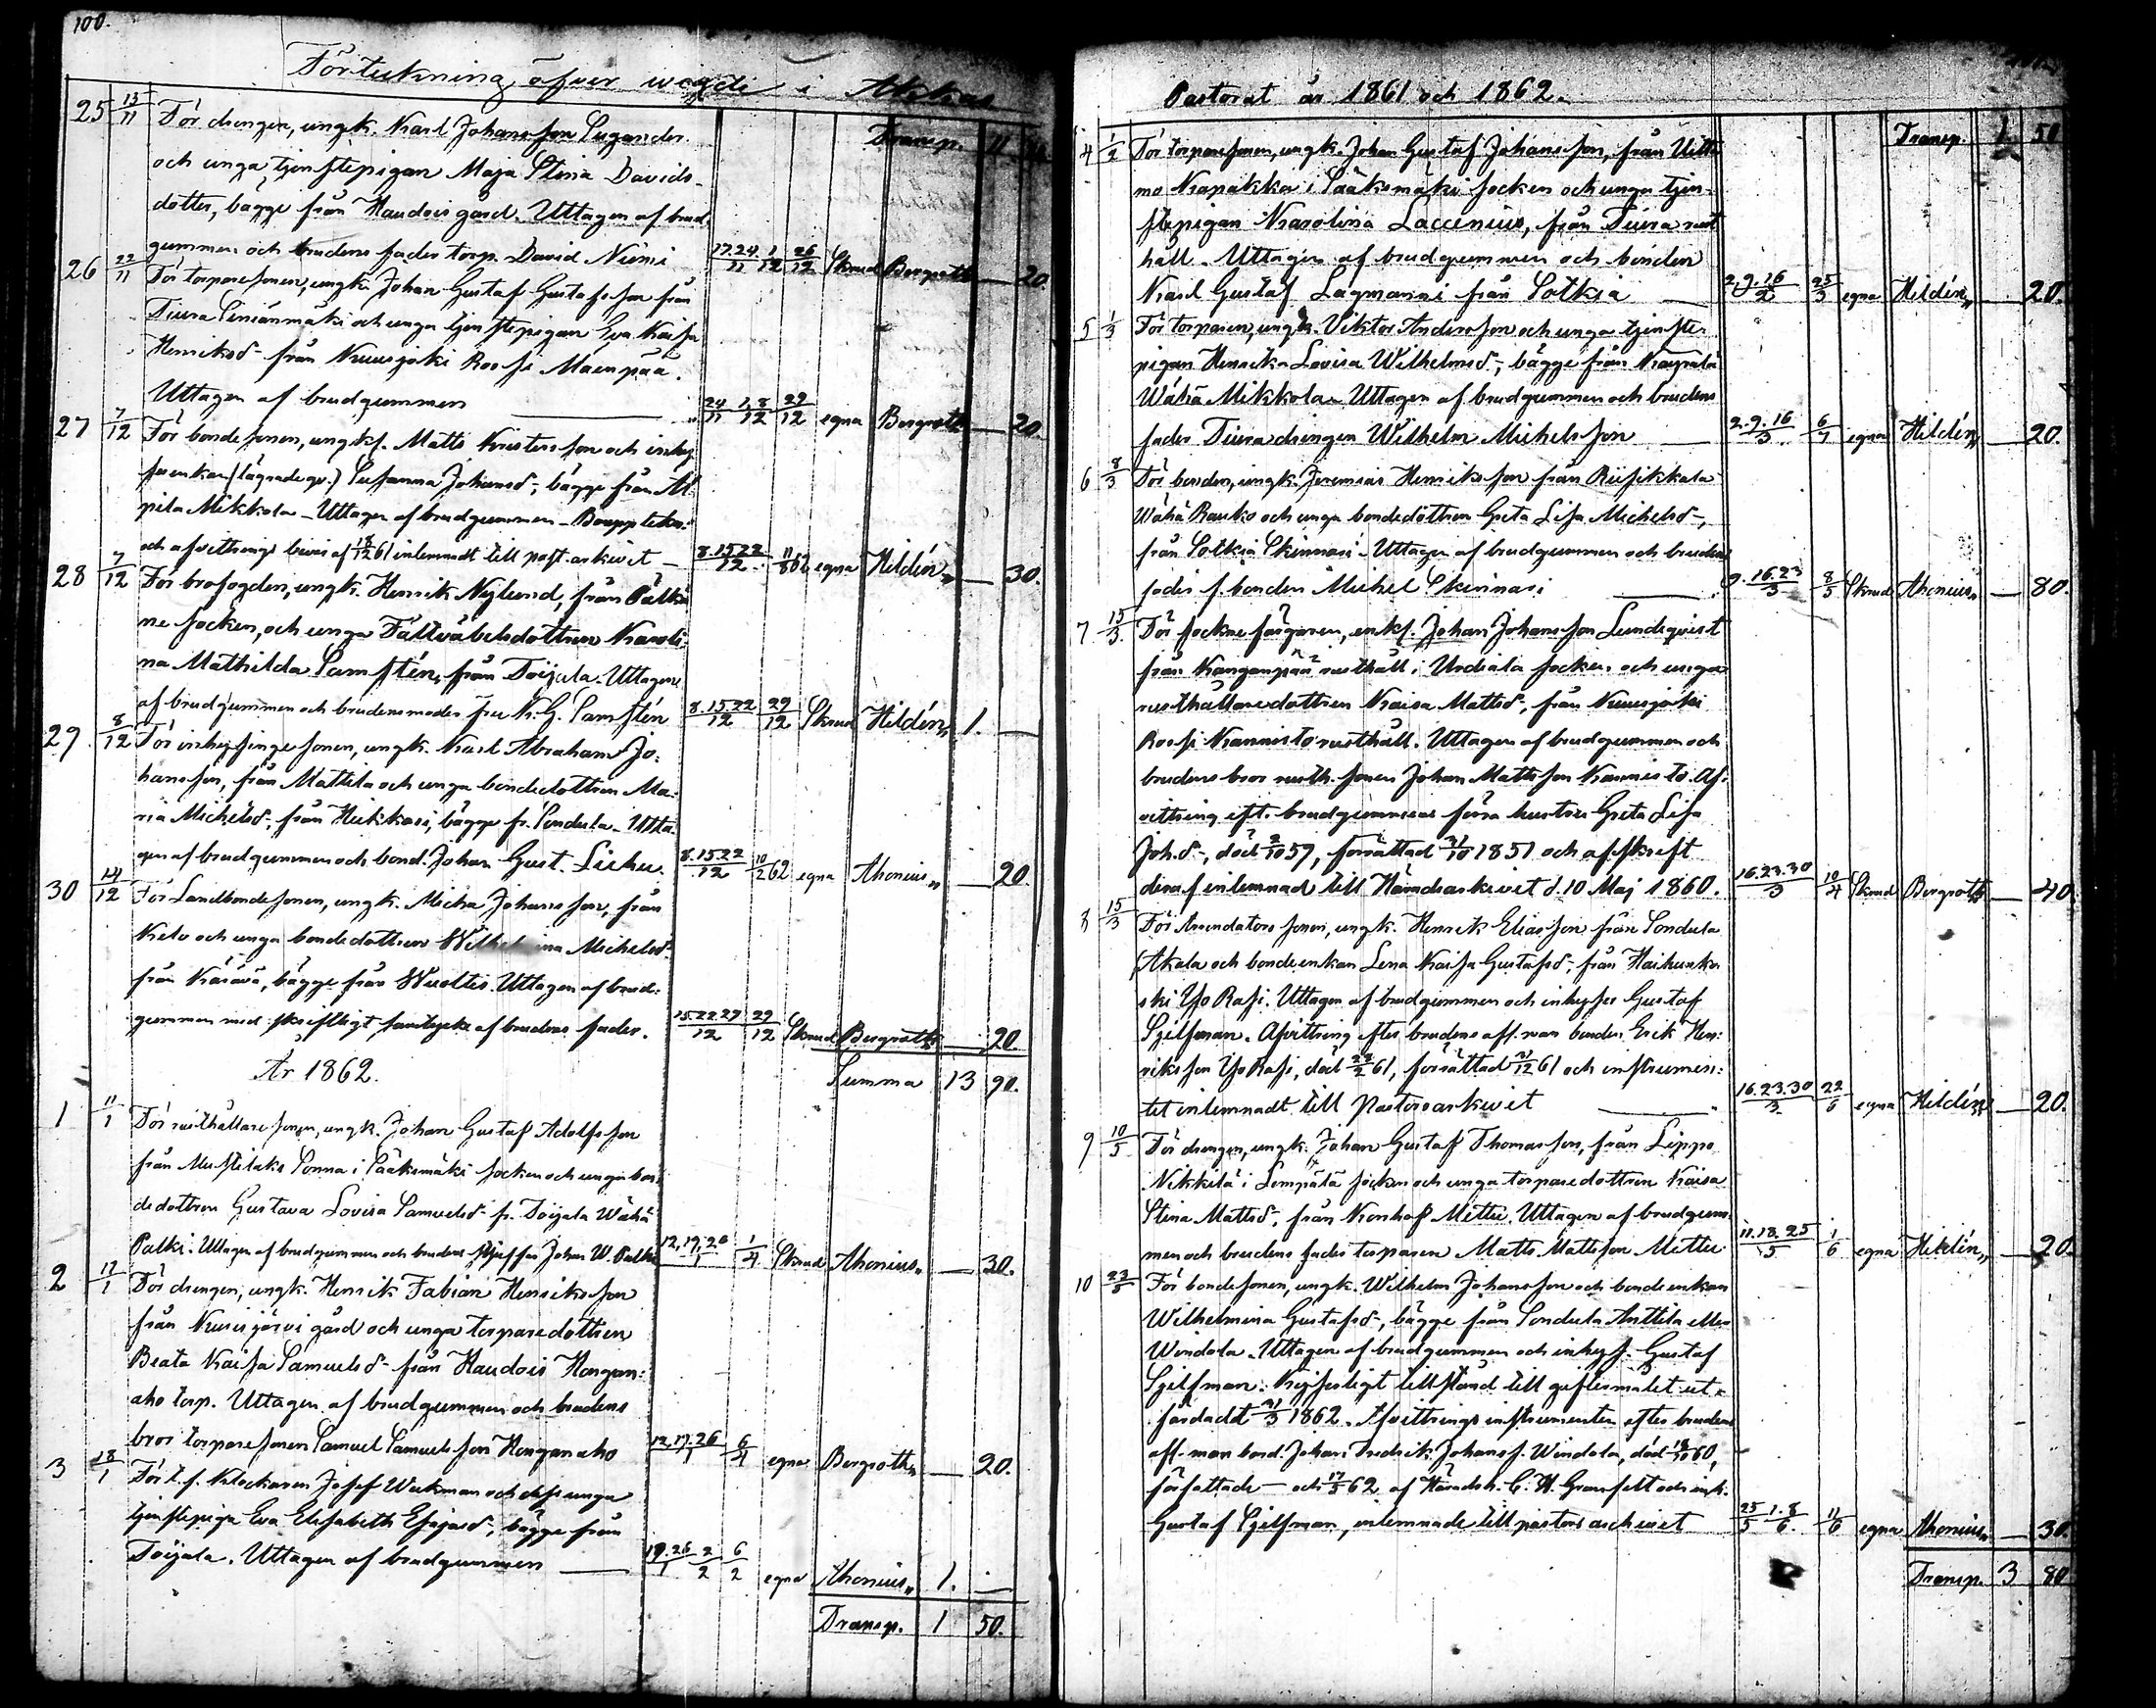 100.
Förteckning öfver wigde i Akkas
Transp. 11
25 13/11 För drengen, ungk. Karl Johansson Lugander
och unga tjenstepigan Maja Stina Davids-
dotter, bägge från Haudois gård. Uttagen af brud-
gummen och brudens fader torp. David Niemi 17.24/11 1/12 26/12 Skrud Bergroth — 20.
26 22/11 För torparesonen, ungk. Johan Gustaf Gustafsson från
Tiura och unga tjenstepigan Eva Kaisa
Henriksd- från Kuurjoki Rossi Maenpää.
Uttagen af brudgummen — 24/11 1.8/12 29/12 egna Bergroth — 20.
27 7/12 För bondesonen, ungkf. Matts Kristersson och inhy
(lägrade qv.) Susanna Johansd-, bägge från Al-
pila Mikkola - Uttagen af brudgummen - Bouppteckn.
och afvittrings bevis af 18/12 61 inlemnadt till past. arkivet — 8.15.22/12 11/8 62 egna Hildén — 30.
28 7/12 För brofogden, ungk. Henrik Nylund, från Pälkä-
ne socken, och unga Fältväbelsdottren Karoli-
na Mathilda Samstén, från Toijala. Uttagen
af brudgummen och brudens moder fru K. G. Samstén 8.15.22/12 29/12 Skrud Hildén 1. —
29. 8/12 För inhysingesonen, ungk. Karl Abraham Jo-
hansson, från Mattila och unga bondedottren Ma-
ria Michelsd-, från Heikkari, bägge fr. Sondula - Utta-
gen af brudgummen och bond. Johan Gust. Lieku. 8.15.22/12 10/2 62 egna Ahonius — 20.
30 14/12 För Landbondesonen, ungk. Micha Johansson, från
Kelv och unga bondedottren Wilhelmina Michelsd-
från Käsävä, bägge från Wuoltis. Uttagen af brud-
gummen med skriftligt samtycke af brudens fader. 15.22.29/12 29/12 Skrud Bergroth — 20.
År 1862.
Summa 13 90.
1 11/1 För rusthållaresonen, ungk. Johan Gustaf Adolfsson
från Sonna i Sääksmäki socken och unga bon-
dedottren Gustava Lovisa Samuelsd- fr. Toijala Wähä
Palki. Uttagen af brudgummen och brudens Johan W. Palki 12.19.26/1 1/4 Skrud Ahonius — 30.
2 12/1 För drengen, ungk. Henrik Fabian Henriksson
från Kurisjärvi gård och unga torparedottren
Beata Kaisa Samuelsd- från Haudois Hongan-
aho torp. Uttagen af brudgummen och brudens
bror torparesonen Samuel Samuelsson Honganaho 12.19.26/1 6/4 egna Bergroth — 20.
3 18/1 För t. f. Klockaren Josef Wickman och dess unga
tjenstepiga Eva Elisabeth Esajasd-, bägge från
Toijala. Uttagen af brudgummen — 19.26/1 2/2 6/2 egna Ahonius 1. —
Transp. 1 50.
Pastorat år 1861 och 1862.
Transp. 1 50
4 1/2 För torparesonen, ungk. Johan Gustaf Johansson, från Uitta
mo Krapakka i Sääksmäki socken och unga tjen-
stepigan Karolina Laccenius, från Tiura rust
håll. Uttagen af brudgummen och bonden
Karl Gustaf Lagmanni från Sotkia — 2.9.16/2 25/3 egna Hildén — 20.
5 1/3 För torparen, ungk. Viktor Andersson och unga tjenste-
pigan Henrika Lovisa Wilhelmsd-, bägge från
Wähä Mikkola. Uttagen af brudgummen och brudens
fader Tiura drengen Wilhelm Michelsson — 2.9.16/3 6/4 egna Hildén — 20.
6 8/3 För bonden, ungk. Jeremias Henriksson från Riisikkala
Wähä Rauko och unga bondedottren Greta Lisa Michelsd-,
från Sotkia Skinnari - Uttagen af brudgummen och brudens
fader f. bonden Michel Skinnari — 9.16.23/3 8/5 Skrud Ahonius — 80.
7 15/3 För sockne färgaren, enkf. Johan Johansson Lundqvist
från Kanganpää rusthåll i Urdiala socken och unga
rusthållaredottren Kaisa Mattsd-, från Kuurjoki
Rossi Kannisto rusthåll. Uttagen af brudgummen och
brudens bror rusth. sonen Johan Mattsson Kannisto. Af-
vittring eft. brudgummens förra hustru Greta Lisa
Joh.d-, död 2/10 57, författad 21/10 1857 och afskrift
deraf inlemnad till Häradsarkivet d. 10 Maj 1860. 16.23.30/3 10/4 Skrud Bergroth — 40.
8 15/3 För Arrendatorssonen, ungk. Henrik Eliasson från Sondula
Akala och bondeenkan Lena Kaisa Gustafsd-, från
Yo Rasi. Uttagen af brudgummen och inhyses Gustaf
Sjelfman. Afvittring efter brudens afl. man bonden Erik Hen-
riksson Yo Rasi, död 22/2 61, författad 21/12 61 och instrumen-
tet inlemnadt till Pastorsarkivet — 16.23.30/3 22/6 egna Hildén — 20.
9 10/5 För drengen, ungk. Johan Gustaf Thomasson, från Lippo
Nikkilä i Lempälä socken och unga torparedottren Kaisa
Stina Mattsd-, från Konhof Mettu. Uttagen af brudgum-
men och brudens fader torparen Matts Mattsson Mettu 11.18.25/5 1/6 egna Hildén — 20.
10 23/5 För bondesonen, ungk. Wilhelm Johansson och bondeenkan
Wilhelmina Gustafsd-, bägge från Sondula Anttila eller
Windala. Uttagen af brudgummen och inhys. Gustaf
Sjelfman. tillstånd till giftermålet ut-
färdadt 21/3 1862. Afvittrings instrumenten efter brudens
afl. man bond. Johan Fredrik Johanss. Windala, död 18/10 60,
författade — och 17/5 62 af Häradsh. C. H. Granfelt och inh.
Gustaf Sjelfman, inlemnade till pastors archivet 25/5 1.8/6 11/6 egna Ahonius — 30.
Transp. 3 80